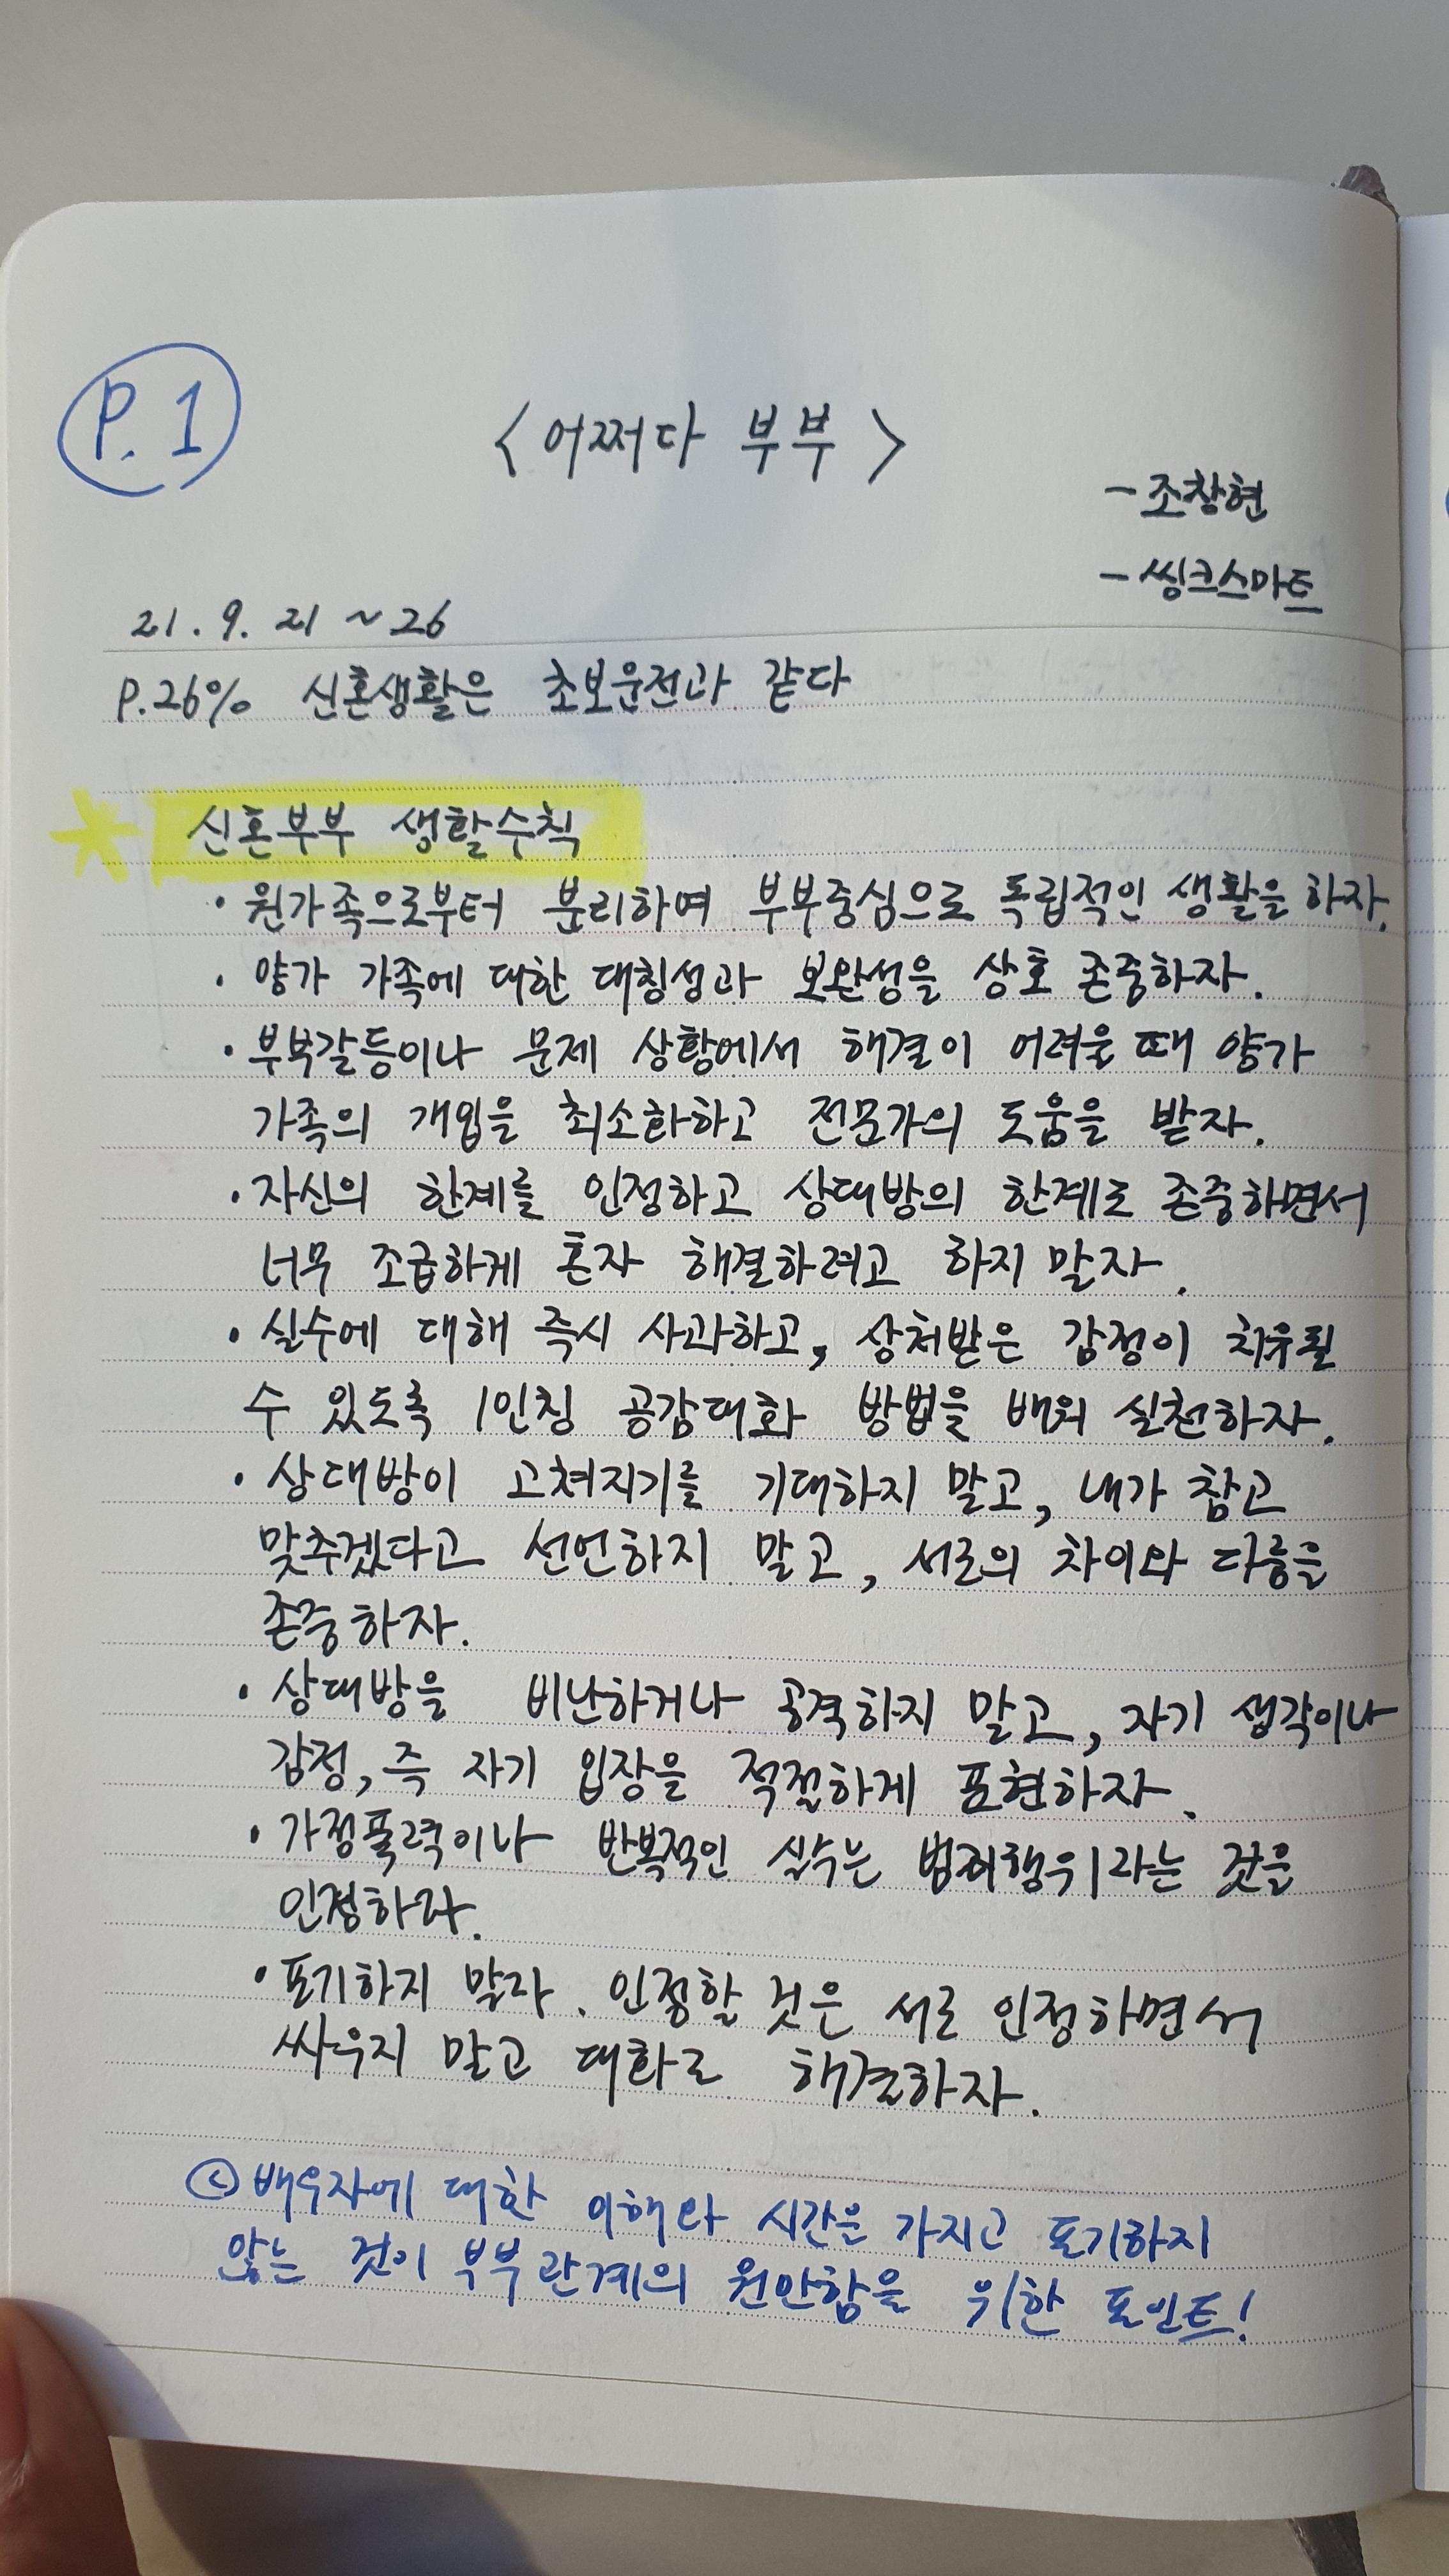 P.1
<어쩌다 부부>
- 조창현
- 씽크스마트
21. 9. 21 ~ 26
P.26% 신혼생활은 초보운전과 같다
* 신혼부부 생활수칙
· 원가족으로부터 분리하여 부부중심으로 독립적인 생활을 하자.
· 양가 가족에 대한 대칭성과 보완성을 상호 존중하자.
· 부부갈등이나 문제 상황에서 해결이 어려울 때 양가
가족의 개입을 최소화하고 전문가의 도움을 받자.
· 자신의 한계를 인정하고 상대방의 한계도 존중하면서
너무 조급하게 혼자 해결하려고 하지 말자.
· 실수에 대해 즉시 사과하고, 상처받은 감정이 치유될
수 있도록 1인칭 공감대화 방법을 배워 실천하자.
· 상대방이 고쳐지기를 기대하지 말고, 내가 참고
맞추겠다고 선언하지 말고, 서로의 차이와 다름을
존중하자.
· 상대방을 비난하거나 공격하지 말고, 자기 생각이나
감정, 즉 자기 입장을 적절하게 표현하자.
· 가정폭력이나 반복적인 실수는 범죄행위라는 것을
인정하라.
· 포기하지 말자. 인정할 것은 서로 인정하면서
싸우지 말고 대화로 해결하자.
ⓒ 배우자에 대한 이해와 시간을 가지고 포기하지
않는 것이 부부관계의 원만함을 위한 포인트!